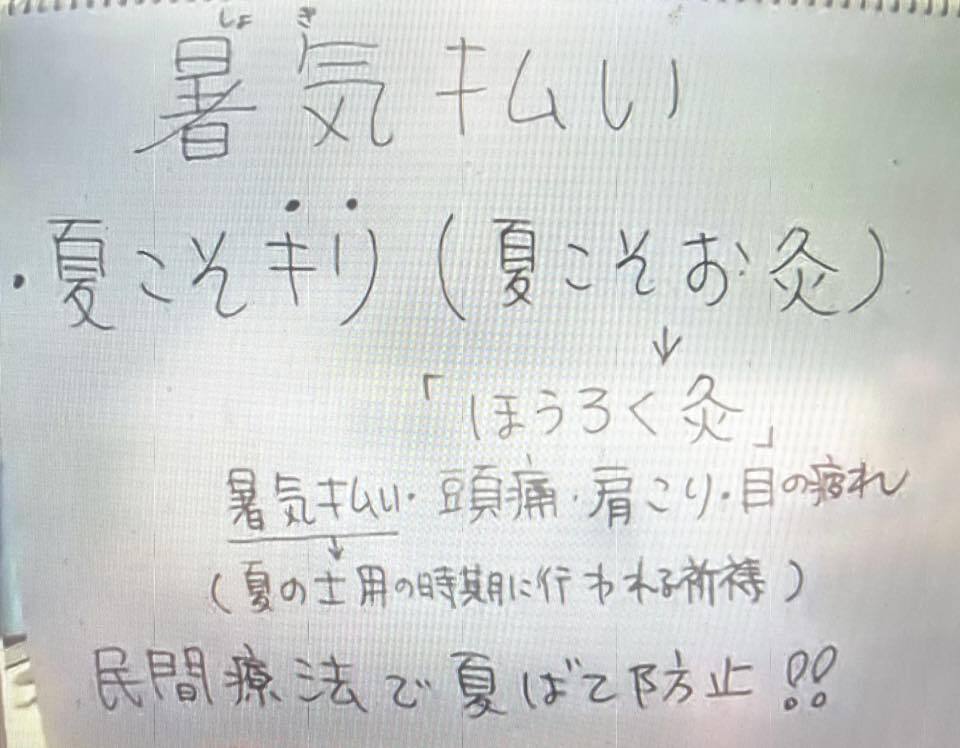 しょ き
暑気払い
・夏こそギリ(夏こそお灸)
↓
「ほうろく灸」
暑気払い・頭痛・肩こり・目の疲れ
↓
(夏の土用の時期に行われる祈祷)
民間療法で夏ばて防止!!